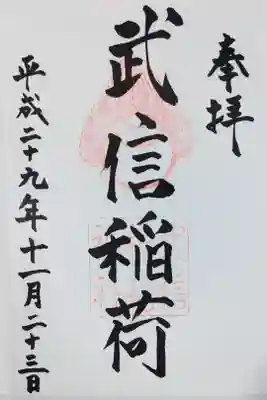 奉拝
武信稲荷
平成二十九年十一月二十三日